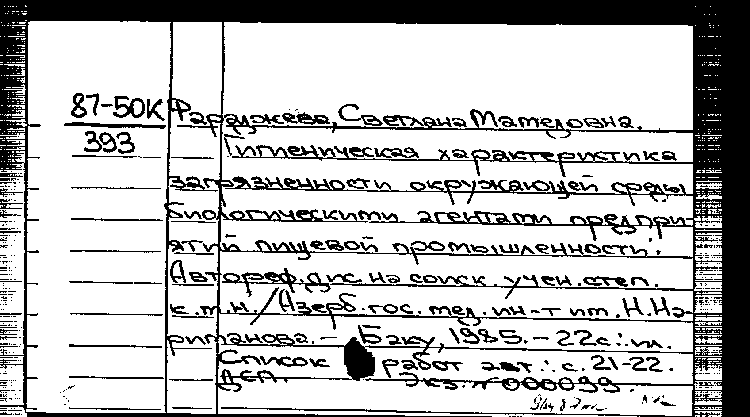 87-50К
393
Фараджева, Светлана Мамедовна.
Гигиеническая характеристика
загрязненности окружающей среды
биологическими агентами предпри-
ятий пищевой промышленности.
Автореф. дис. на соиск. учен. степ.
к.м.н. / Азерб. гос. мед. ин-т им. Н. На-
риманова. – Баку, 1985. – 22с.: ил.
Список работ авт.: с. 21-22.
ДСП. Экз. № 000099.